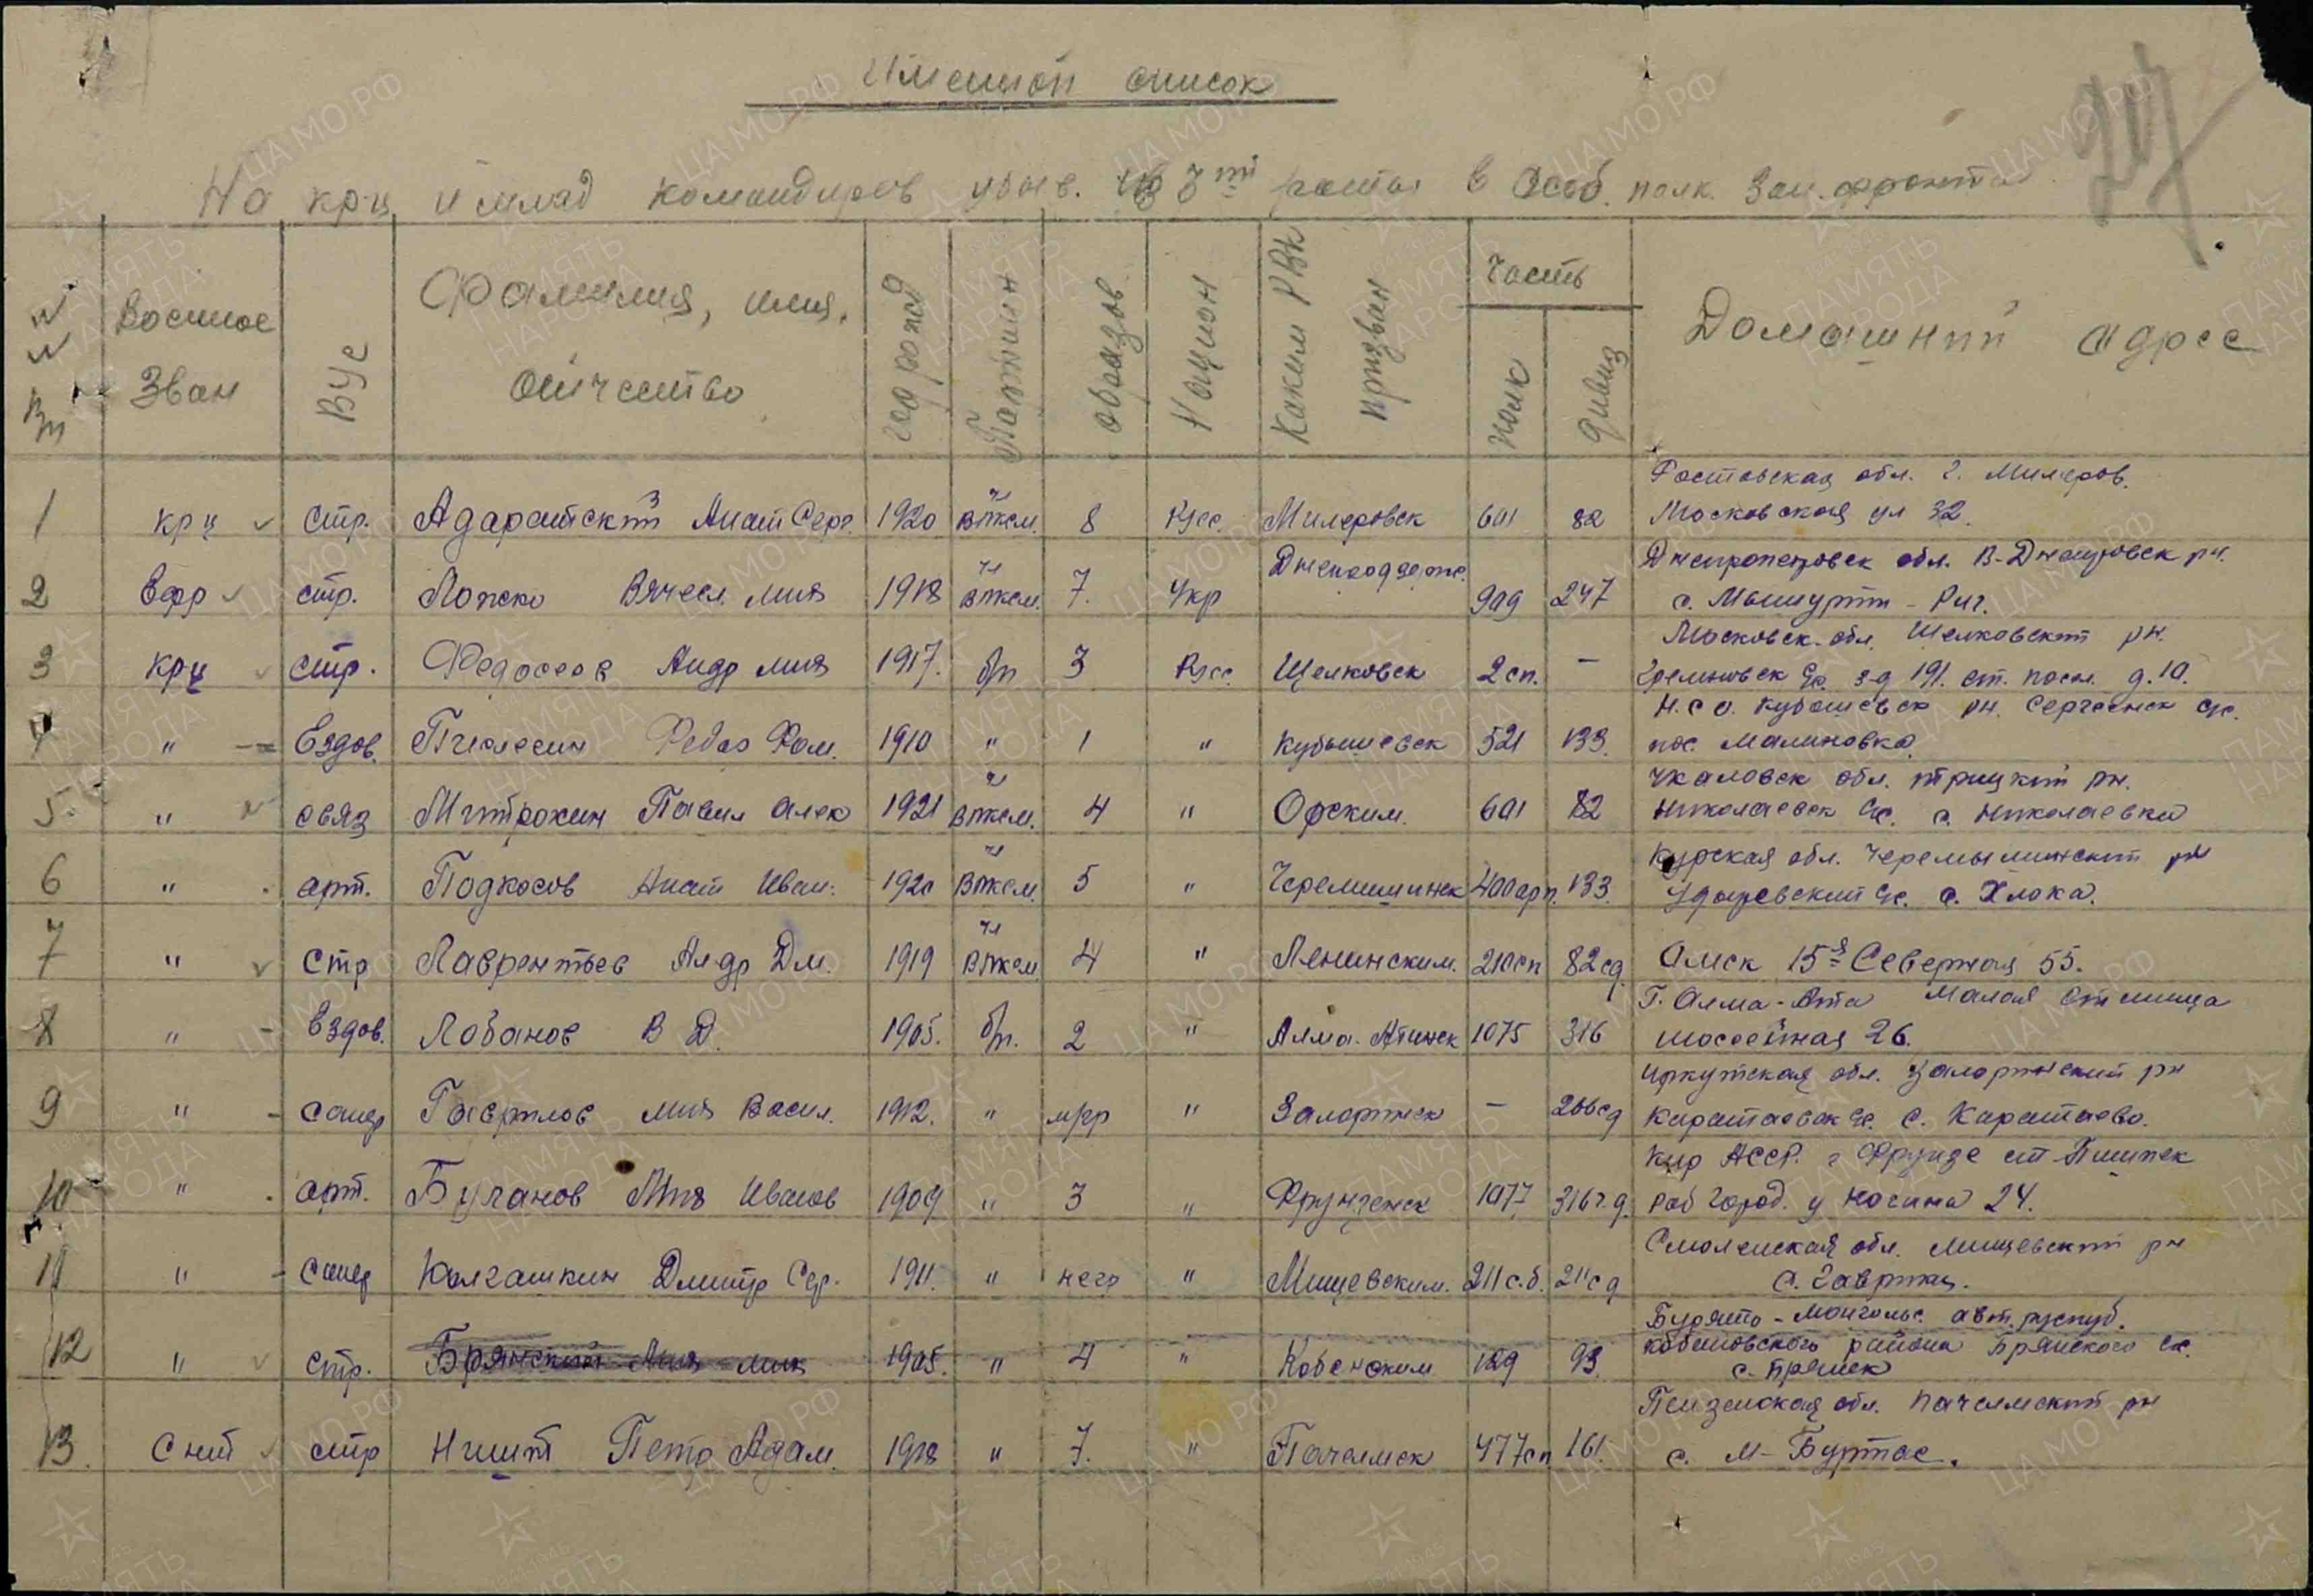 Именной список
На кр-ц и млад командиров убыв. из 7й роты в Особ. полк. Зап. фронта
№№ пп
Военное Зван
ВУС
Фамилия, имя, отчество
год рожд
Партийн
образов.
Национ
Каким РВК призван
Часть
полк
дивиз
Домашний адрес
Ростовская обл. г. Милеров.
1 кр-ц стр. Анат Серг. 1920 чл ВЛКСМ. 8 Рус. Милеровск 601 82 Московская ул 32.
Днепропетровск обл. В-Днепровск рн.
2 Ефр стр. Лопско Вячесл. Мих 1918 чл ВЛКСМ. 7. Укр Днепродзерж. 909 247 с. Мышурин - Рог.
Московск. обл. Щелковский рн.
3 кр-ц стр. Федосеев Андр Мих 1917. б/п 3 Рус. Щелковск 2 сп. – Гремновск с/с. з-д 191. ст. посл. д. 10.
Н.С.О. Куйбышевск рн. Сергеенск с/с.
" Ездов. Федор Фом. 1910 " 1 " Куйбышевск 521 133. пос. Малиновка
Чкаловск обл. рн.
5. " связ Митрохин Павел Алек 1921 чл ВЛКСМ. 4 " Орским. 601 82 Николаевск с/с. с. Николаевка
Курская обл. Черемисинский рн
6 " арт. Подкосов Анат Иван. 1920 чл ВЛКСМ. 5 " Черемишинск 400 арп. 133. Удыревский с/с. с. Хлока.
7 " стр Лаврентьев Ал-др Дм. 1919 чл ВЛКСМ 4 " Ленинским. 210 сп 82 сд. Омск 15я Северная 55.
Г. Алма-Ата Малая Станица
8 " Ездов. Лобанов В Д. 1905. б/п. 2 " Алма-Атинск 1075 316 шоссейная 26.
Иркутская обл. Заларинский рн
9 " сапер Гаврилов Мих Васил. 1912. " м/гр " Заларинск – 266 сд Каратаевск с/с. с. Каратаево.
Кир АССР. г Фрунзе ст-Пишпек
10 " арт. Буганов Мих Иванов 1909 " 3 " Фрунзенск 1077 316 г.д. раб город. у Ногина 24.
Смоленская обл. Мищевский рн
11 " сапер Калгашкин Дмитр Сер. 1911. " негр " Мищевским. 211 с.б. 211 сд с. Гаврики.
Бурято-Монгольс. авт. респуб.
Кобенского района Брянского с/с.
12 " стр. Брянский Мих 1905. " 4 " Кобенским 129 93. с. Брянск
Пензенская обл. Пачелмский рн
13. С-нт стр Петр Адам. 1918 " 7. " Пачелмск 477 сп 161. с. М-Буртас.